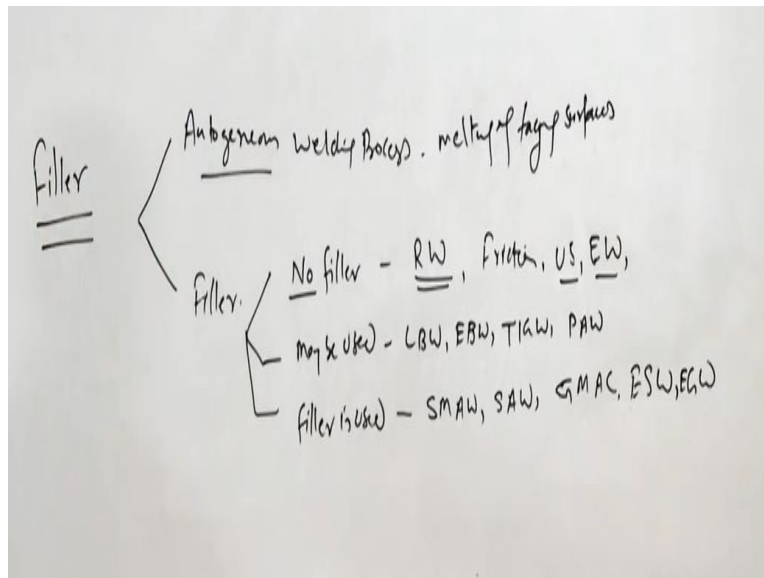 Autogeneous welding Process. melting of faying surfaces
Filler
No filler - RW, Friction, US, EW,
Filler.
may be used - LBW, EBW, TIGW, PAW
filler is used - SMAW, SAW, GMAC, ESW, EGW